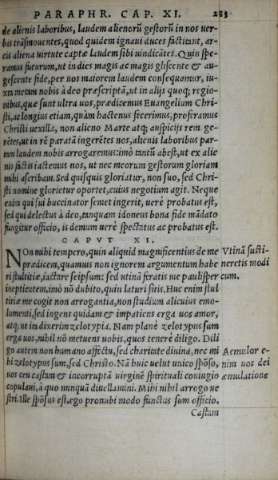 PARAPHR. CAP. XI. 283
de alienis laboribus, laudem alienorũ gestorũ in nos ver-
bis trãsmouentes, quod quidem ignaui duces factitant, ar-
cis aliena uirtute captæ laudem sibi uindicãtes. Quin spe-
ramus futurum, ut in dies magis ac magis gliscente & au-
gescente fide, per nos maiorem laudem consequamur, iu-
xta metam nobis à deo præscriptã, ut in alijs quoq; regio-
nibus, quæ sunt ultra uos, prædicemus Euangelium Chri-
sti, ac longius etiam, quàm hactenus fecerimus, proferamus
Christi uexilla, non alieno Marte atq; auspicijs rem ge-
rẽtes, ut in rẽ paratã ingerẽtes nos, alienis laboribus par-
tam laudem nobis arrogaremus: imò tantũ abest, ut ex alie
nis factis iactemus nos, ut nec meorum gestorum gloriam
mihi ascribam. Sed quisquis gloriatur, non suo, sed Chri-
sti nomine glorietur oportet, cuius negotium agit. Neque
enim qui sui buccinator semet ingerit, uerè probatus est,
sed qui delectus à deo, tanquam idoneus bona fide mãdato
fungitur officio, is demum uerè spectatus ac probatus est.
CAPVT XI.
Non mihi tempero, quin aliquid magnificentius de me
prædicem, quamuis non ignorem argumentum habe
ri stultitiæ, iactare seipsum: sed utinã feratis me paulisper
ineptientem, imò nõ dubito, quin laturi sitis. Huc enim stul
titiæ me cogit non arrogantia, non studium alicuius emo-
lumenti, sed ingens quidam & impatiens erga uos amor,
atq; ut ita dixerim zelotypia. Nam planè zelotypus sum
erga uos, nihil nõ metuens uobis, quos tenerè diligo. Dili
go autem non humano affectu, sed charitate diuina, nec mi
hi zelotypus sum, sed Christo. Nã huic uelut unico spõso,
uos ceu castam & incorruptã uirginẽ spirituali coniugio
copulani, à quo nunquã diuellamini. Mihi nihil arrogo ue
stri. Ille spõsus est, ego pronubi modo functus sum officio.
Castam
Vtinã susti-
neretis modi
cum.
Aemulor e-
nim uos dei
æmulatione